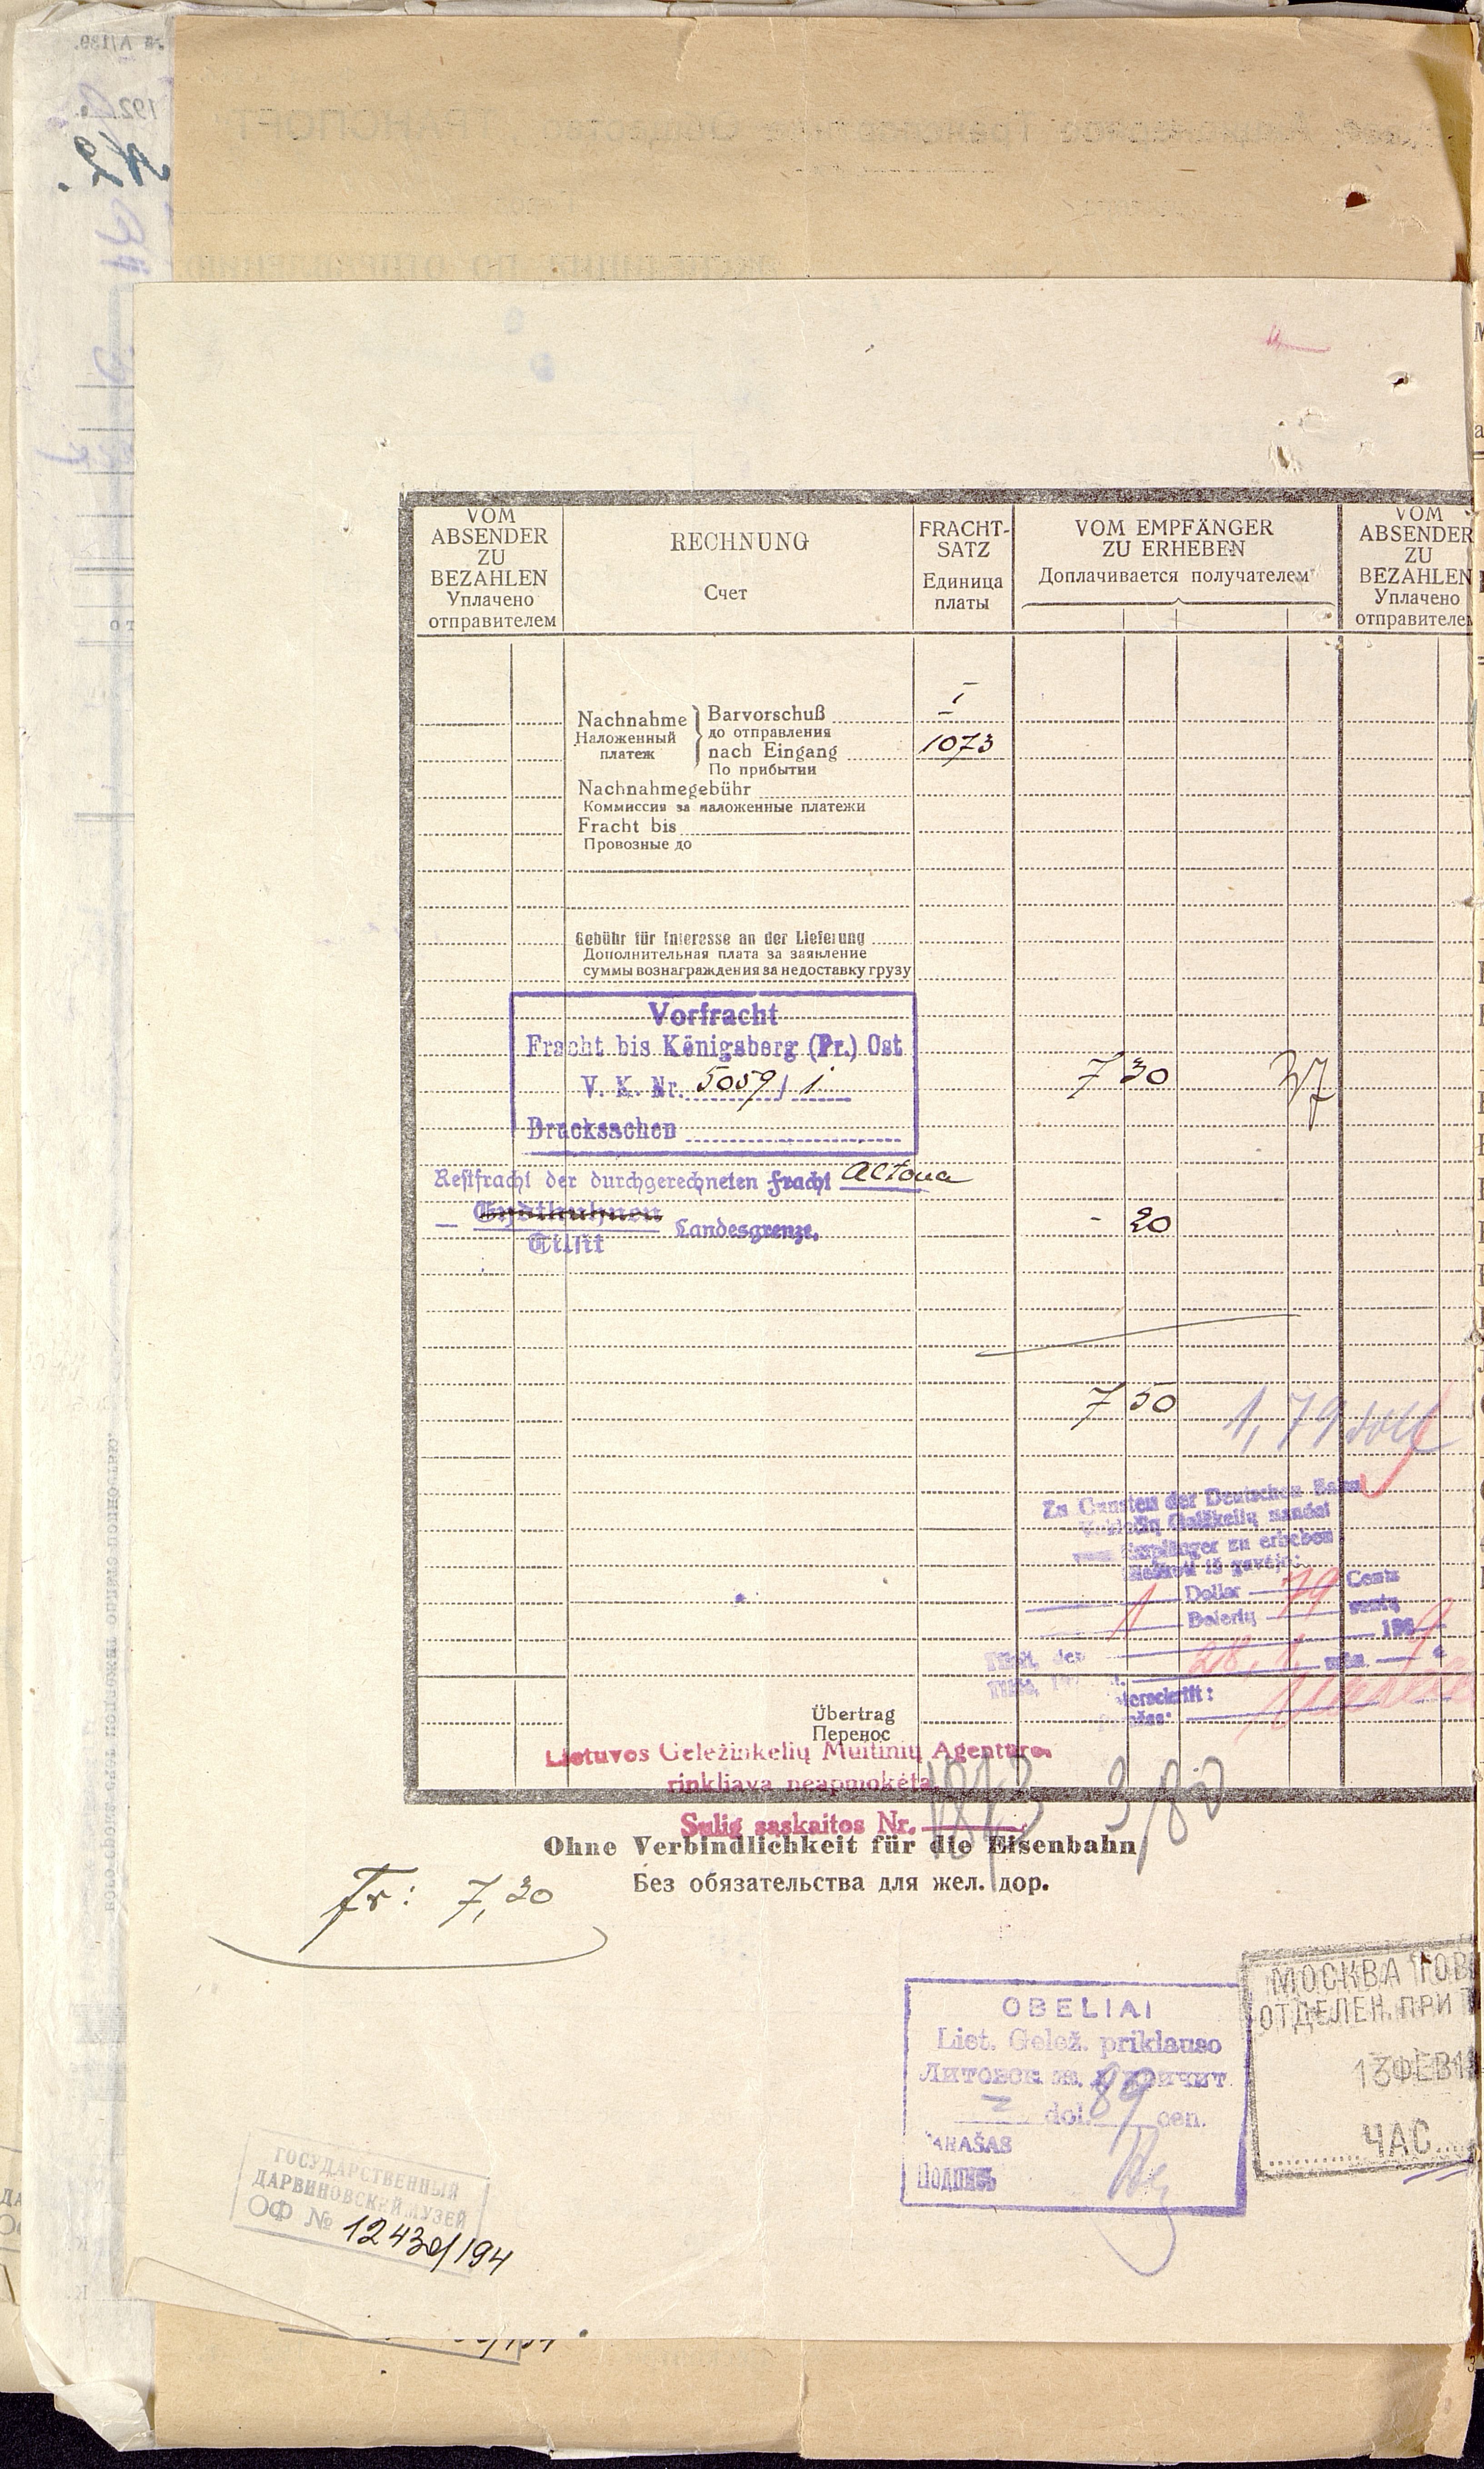 VOM
ABSENDER
ZU
BEZAHLEN
Уплачено
отправителем
RECHNUNG
Счет
FRACHT-
SATZ
Единица
платы
VOM EMPFÄNGER
ZU ERHEBEN
Доплачивается получателем
VOM
ABSENDER
ZU
BEZAHLEN
Уплачено
Nachnahme
Наложенный
платеж
Barvorschuß
до отправления
nach Eingang
По прибытии
1073
Nachnahmegebühr
Коммиссия за наложенные платежи
Fracht bis
Провозные до
Gebühr für Interesse an der Lieferung
Дополнительная плата за заявление
суммы вознаграждения за недоставку грузу
Vorfracht
Fracht bis Königsberg (Pr.) Ost
V. K. Nr. 5059 / i
7 30
37
Drucksachen
Restfracht der durchgerechneten Fracht Altona
— Eydtkuhnen Landesgrenze.
Tilsit
- 20
7 50
1,79 doll
Zu Gunsten der Deutschen Bahn
Empfänger zu erheben
1 Dollar 79 Cents
Dolerių centų
28. 1.
Unterschrift:
Übertrag
Перенос
Lietuvos Geležinkelių Muitinių Agentūros
rinkliava neapmokėta
Sulig sąskaitos Nr. 1873
3,80
Ohne Verbindlichkeit für die Eisenbahn
Без обязательства для жел. дор.
Fr: 7,30
OBELIAI
Liet. Gelež. priklauso
dol. 89 cen.
PARAŠAS
Подпись
МОСКВА ТОВ
ОТДЕЛЕН. ПРИ Т
13 ФЕВ
ЧАС
ГОСУДАРСТВЕННЫЙ
ДАРВИНОВСКИЙ МУЗЕЙ
ОФ № 12430/194